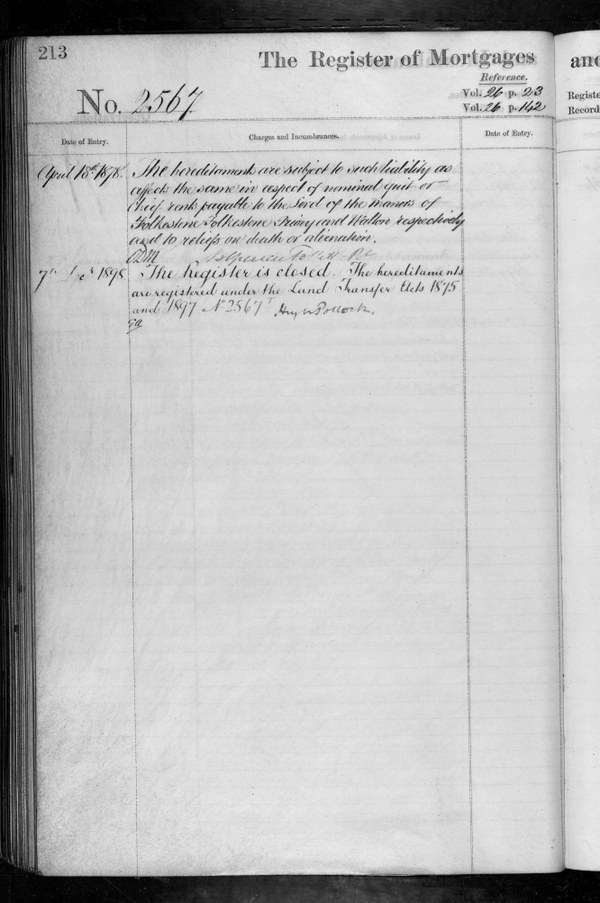 213
The Register of Mortgages
and
Reference.
No. 2567
Vol. 26 p. 213
Vol. 26 p. 142
Registe
Record
Date of Entry.
Charges and Incumbrances.
Date of Entry.
April 18th 1878
The hereditaments are subject to such liability as
affects the same in respect of nominal quit or
chief rents payable to the Lord of the Manors of
Folkestone Folkestone Priory and Walton respectively
and to reliefs on death or alienation.
7th Decr 1898
The Register is closed. The hereditaments
are registered under the Land Transfer Acts 1875
and 1897 No 2567
Hugh Pollock.